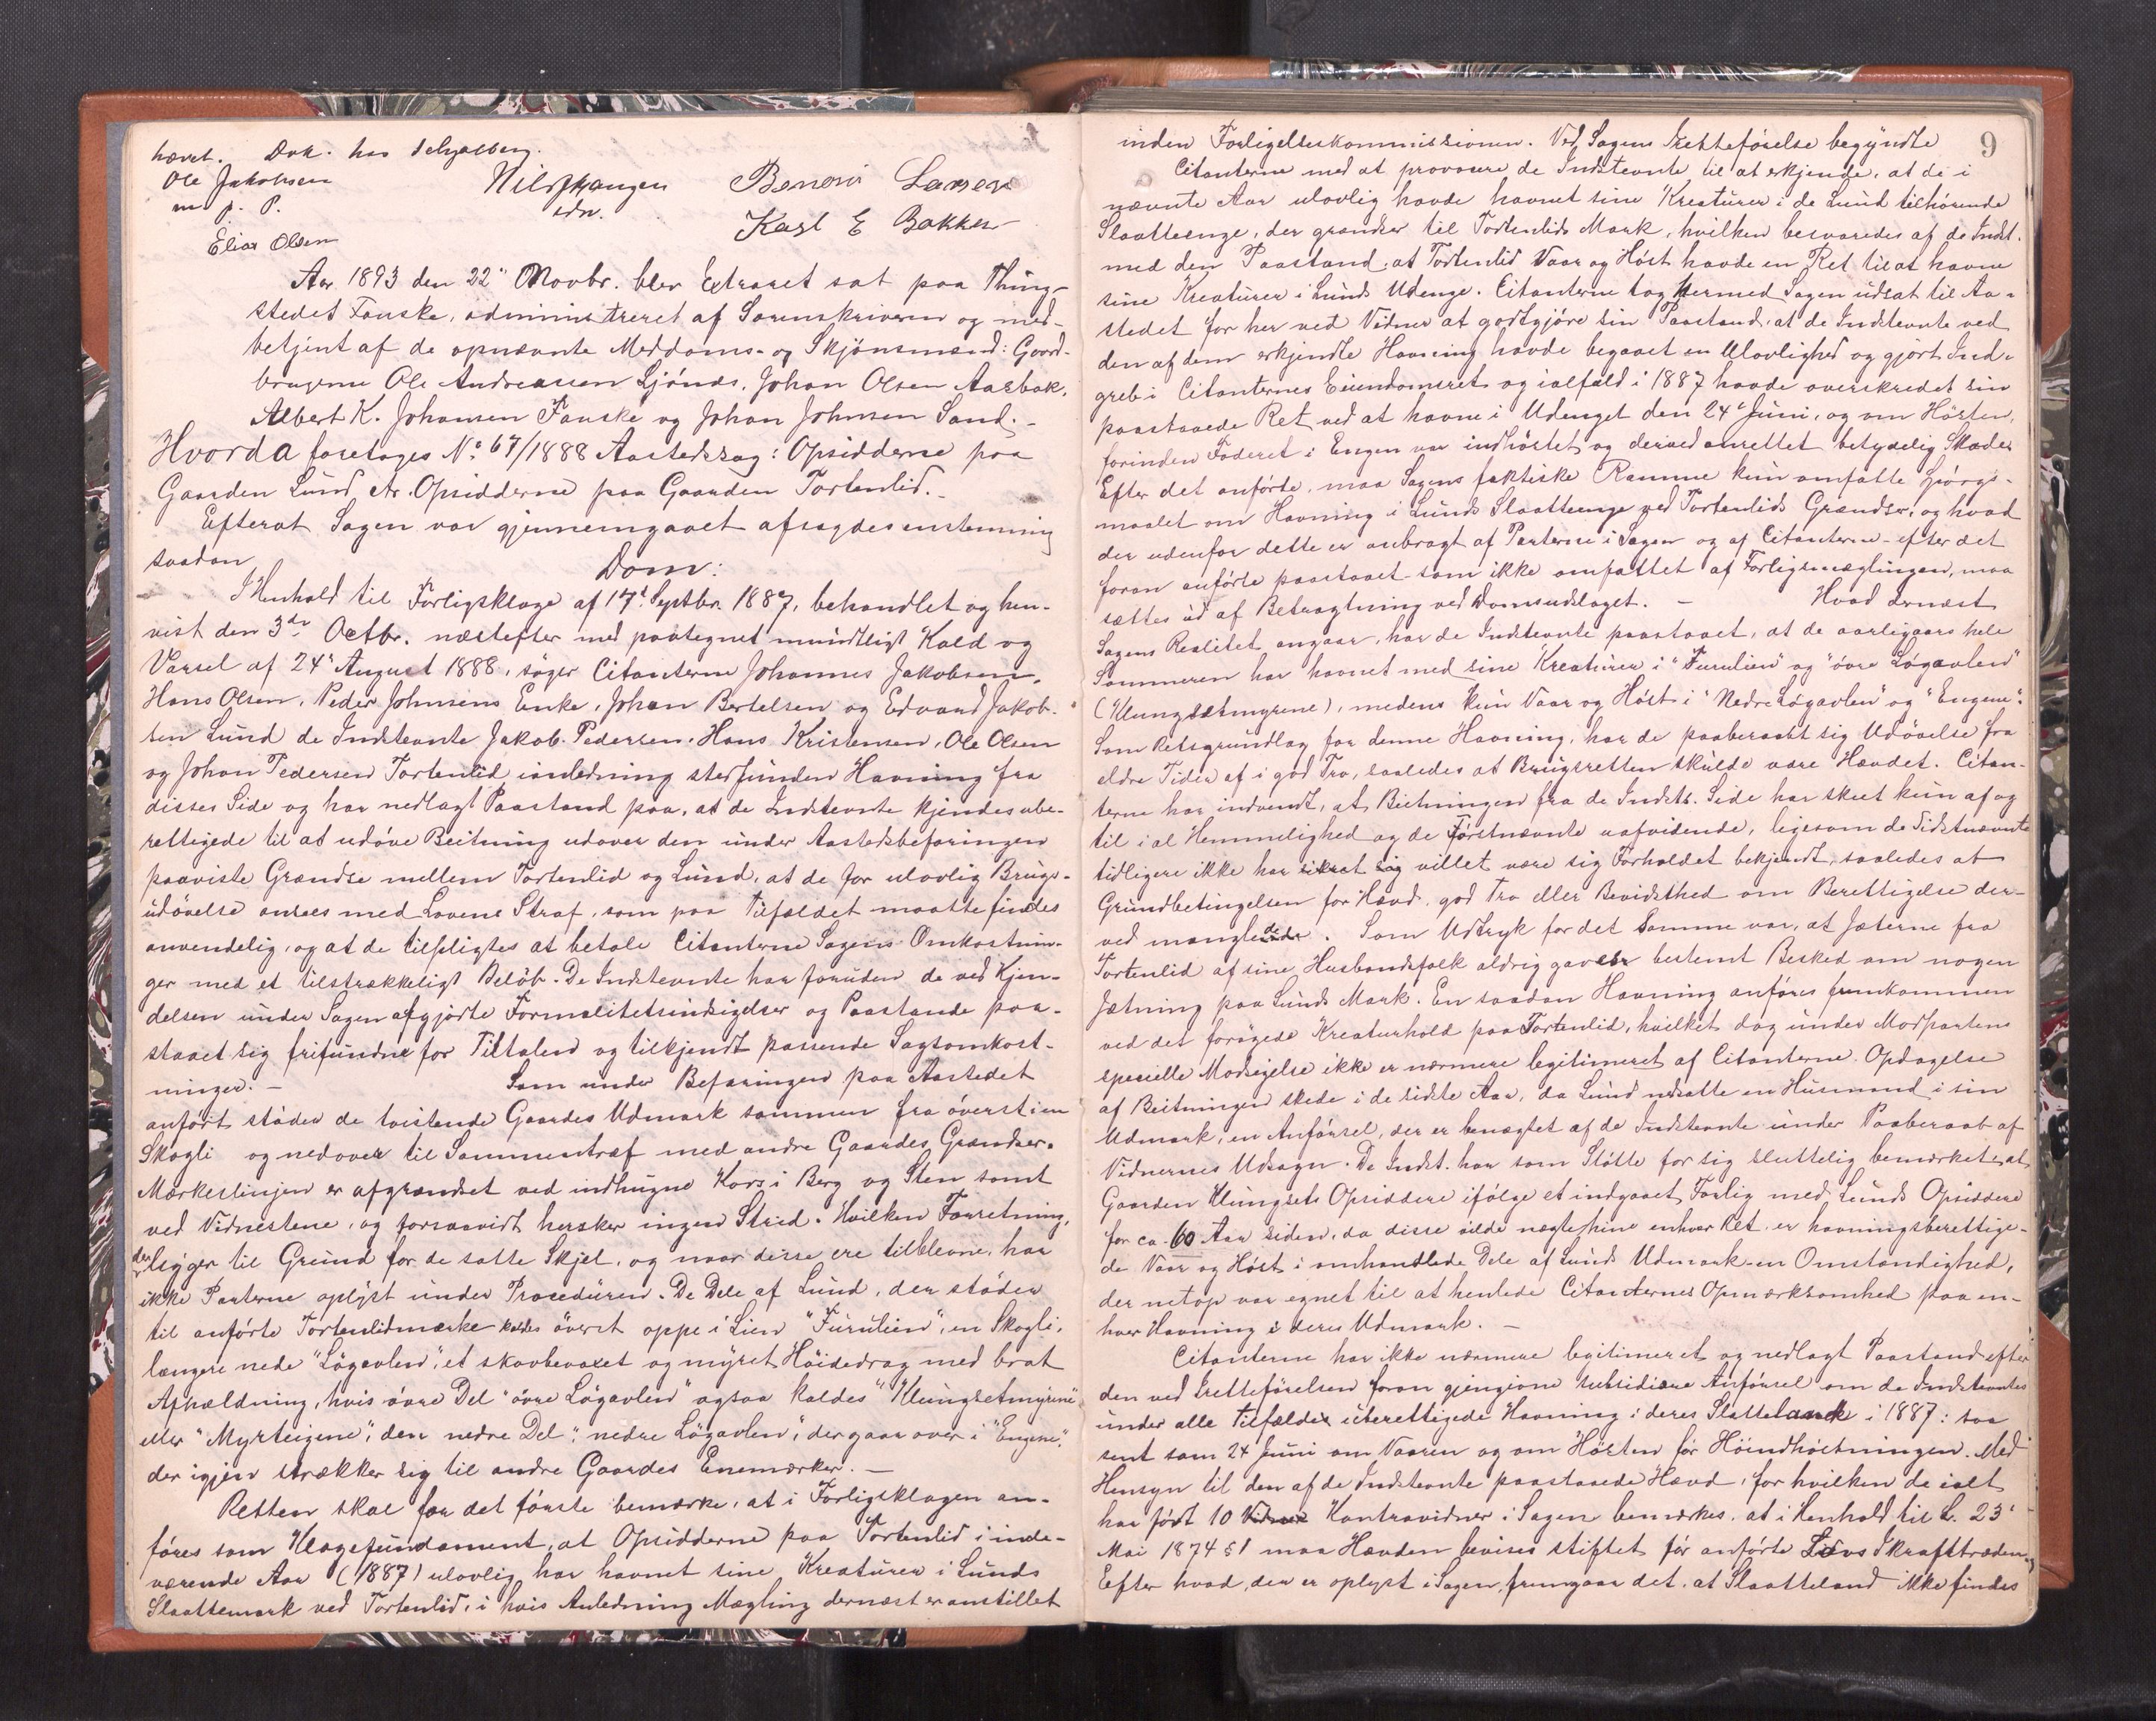 hævet. Dok. hos Schjelberg.
Ole Jakobsen
m. p. P.
Elias Olsen
Nils Haugen Benoni Larsen
edv. Karl E Bakken
Aar 1893 den 22' Novbr. blev Extraret sat paa Thing-
stedet Fauske, administreret af Sorenskriveren og med-
betjent af de opnævnte Meddoms- og Skjønsmænd: Gaard-
brugerne Ole Andreassen Ljønes, Johan Olsen Aasbak,
Albert K. Johansen Fauske og Johan Johnsen Sand. -
Hvorda foretoges No 67/1888 Aastedssag: Opsidderne paa
Gaarden Lund ctr. Opsidderne paa Gaarden Tortenlid. -
Efterat Sagen var gjennemgaaet afsagdes enstemmig
saadan
Dom:
I Henhold til Forligsklage af 17' Septbr. 1887, behandlet og hen-
vist den 3die Octbr. næstefter med paategnet mundtligt Kald og
Varsel af 24' August 1888, søger Citanterne Johannes Jakobsen,
Hans Olsen, Peder Johnsens Enke, Johan Bertelsen og Edvard Jakob-
sen Lund de Indstevnte Jakob Pedersen, Hans Kristensen, Ole Olsen
og Johan Pedersen Tortenlid i anledning stedfunden Havning fra
disses Side og har nedlagt Paastand paa, at de Indstevnte kjendes ube-
rettigede til at udøve Beitning udover den under Aastedsbefaringen
paaviste Grændse mellem Tortenlid og Lund, at de for ulovlig Brugs-
udøvelse ansees med Lovens Straf, som paa Tilfældet maatte findes
anvendelig, og at de tilpligtes at betale Citanterne Sagens Omkostnin-
ger med et tilstrækkeligt Beløb. De Indstevnte har foruden de ved Kjen-
delsen under Sagen afgjorte Formalitetsindsigelser og Paastande paa-
staaet sig frifundne for Tiltalen og tilkjendt passende Sagsomkost-
ninger. - Som under Befaringen paa Aastedet
anført støder de tvistende Gaardes Udmark sammen fra øverst i en
Skogli og nedover til Sammentræf med andre Gaardes Grændser.
Mærkeslinjen er afgrændset ved indhugne Kors i Berg og Sten samt
ved Vidnestene, og forsaavidt hersker ingen Strid. Hvilken Forretning,
der ligger til Grund for de satte Skjel, og naar disse ere tilblevne, har
ikke Parterne oplyst under Proceduren. De Dele af Lund, der støder
til anførte Tortenlidmærke kaldes øverst oppe i Lien "Furulien", en Skogli,
længere nede "Løgavlen", et skovbevoxet og myret Høidedrag med brat
Afhældning, hvis øvre Del "øvre Løgavlen" ogsaa kaldes "Klungsetmyrene"
eller "Myrteigene", den nedre Del "nedre Løgavlen", der gaar over i "Engene",
der igjen strækker sig til andre Gaardes Enemærker. -
Retten skal for det første bemærke, at i Forligsklagen an-
føres som Klagefundament, at Opsidderne paa Tortenlid i inde-
værende Aar (1887) ulovlig har havnet sine Kreaturer i Lunds
Slaattemark ved Tortenlid, i hvis Anledning Mægling dernæst er anstillet
9
inden Forligelseskommissionen. Ved Sagens Iretteførelse begyndte
Citanterne med at provocere de Indstevnte til at erkjende, at de i
nævnte Aar ulovlig havde havnet sine Kreaturer i de Lund tilhørende
Slaatteenge, der grændser til Tortenlids Mark, hvilken besvaredes af de Indst.
med den Paastand at Tortenlid Vaar og Høst havde en Ret til at havne
sine Kreaturer i Lunds Udenge. Citanterne tog hermed Sagen udsat til Aa-
stedet for her ved Vidner at godtgjøre sin Paastand, at de Indstevnte ved
den af dem erkjendte Havning havde begaaet en Ulovlighed og gjort Ind-
greb i Citanternes Eiendomsret og ialfald i 1887 havde overskredet sin
paastaaede Ret ved at havne i Udenget den 24' Juni, og om Høsten,
forinden Foderet i Engen var indhøstet og derved anrettet betydelig Skade.
Efter det anførte maa Sagens faktiske Ramme kun omfatte Spørgs-
maalet om Havning i Lunds Slaatteenge ved Tortenlids Grændser, og hvad
der udenfor dette er anbragt af Parterne i Sagen og af Citanterne - efter det
foran anførte paastaaet - som ikke omfattet af Forligsmæglingen, maa
sættes ud af Betragtning ved Domsudslaget. - Hvad dernæst
Sagens Realitet angaar, har de Indstevnte paastaaet, at de aarligaars hele
Sommeren har havnet med sine Kreaturer i "Furulien" og "øvre Løgavlen"
(Klungsetmyrene), medens kun Vaar og Høst i "Nedre Løgavlen" og "Engene".
Som Retsgrundlag for denne Havning, har de paaberaabt sig Udøvelse fra
eldre Tider af i god Tro, saaledes at Brugsretten skulde være Hævdet. Citan-
terne har indvendt, at Beitningen fra de Indsts. Side har skeet kun af og
til i al Hemmelighed og de Førstnævnte uafvidende, ligesom de Sidstnævnte
tidligere ikke har sikret sig villet være sig Forholdet bekjendt, saaledes at
Grundbetingelsen for Hævd, god Tro eller Bevidsthed om Berettigelse der-
ved manglede. Som Udtryk for det Samme var, at Jæterne fra
Tortenlid af sine Husbondsfolk aldrig gaves bestemt Besked om nogen
Jætning paa Lunds Mark. En saadan Havning anføres fremkommen
ved det forøgede Kreaturhold paa Tortenlid, hvilket dog under Modpartens
specielle Modsigelse ikke er nærmere legitimeret af Citanterne. Opdagelse
af Beitningen skede i de sidste Aar, da Lund nedsatte en Husmand i sin
Udmark, en Anførsel, der er benægtet af de Indstevnte under Paaberaab af
Vidnernes Udsagn. De Indst. har som Støtte for sig sluttelig bemærket, at
Gaarden Klungsets Opsiddere ifølge et indgaaet Forlig med Lunds Opsiddere
for ca. 60 Aar siden, da disse vilde nægte hine enhver Ret, er havningsberettige-
de Vaar og Høst i omhandlede Dele af Lunds Udmark - en Omstændighed,
der netop var egnet til at henlede Citanternes Opmærksomhed paa en-
hver Havning i deres Udmark. -
Citanterne har ikke nærmere legitimeret og nedlagt Paastand efter
den ved Iretteførelsen foran gjengivne subsidiære Anførsel om de Indstevntes
under alle Tilfælder uberettigede Havning i deres Slatteland i 1887: saa
sent som 24 Juni om Vaaren og om Høsten før Høindhøstningen. Med
Hensyn til den af de Indstevnte paastaaede Hævd, for hvilken de ialt
har ført 10 Vidner Kontravidner i Sagen bemærkes, at i Henhold til L. 23'
Mai 1874 § 1 maa Hævden bevises stiftet før anførte Lovs Ikrafttræden.
Efter hvad der er oplyst i Sagen, fremgaar det, at Slaatteland ikke findes